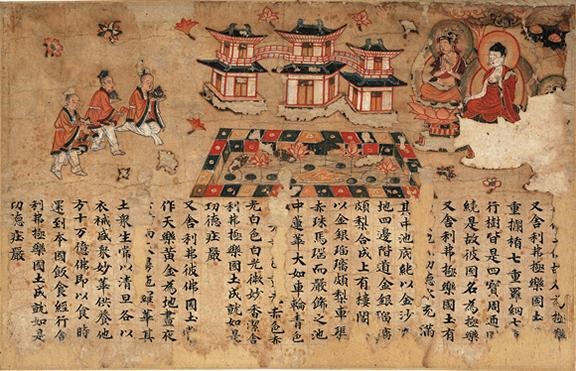 極樂
又舍利弗極樂國土
重攔楯七重羅網七
行樹皆是四寶周通
繞是故彼國名為極樂
又舍利弗極樂國土有
充滿
其中池底純以金沙
地四邊階道金銀瑠璃
頗梨合成上有樓閣
以金銀瑠璃頗梨車璩
赤珠馬瑙而嚴飾之池
中蓮華大如車輪青色
赤色赤
光白色白光微妙香潔舍
利弗極樂國土成就如是
功德莊嚴
又舍利弗彼佛國土
作天樂黃金為地晝夜
而羅華其
土衆生常以清旦各以
衣裓盛衆妙華供養他
方十萬億佛即以食時
還到本國飯食經行舍
利弗極樂國土成就如是
功德莊嚴